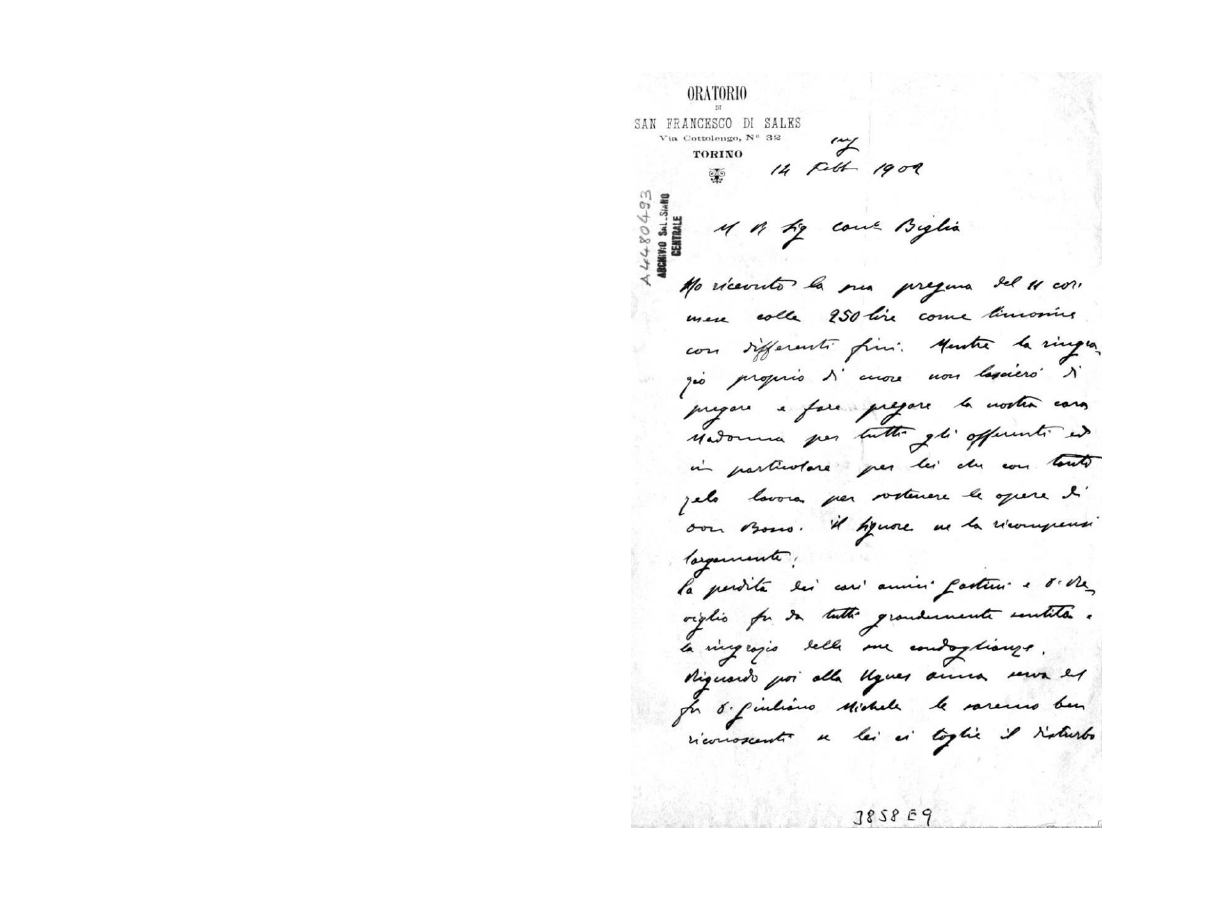 ORATORIO
DI
SAN FRANCESCO DI SALES
Via Cottolengo, N° 32
TORINO
14 Febb 1902
A4480493
ARCHIVIO SALESIANO
CENTRALE
M R Sig Biglia
Ho ricevuto la sua pregma del 11 corr
mese colle 250 lire come limosine
con differenti fini. Mentre la ringra-
zio proprio di cuore non lascierò di
pregare e fare pregare la nostra cara
Madonna per tutti gli offerenti ed
in particolare per lei che con tanto
zelo lavora per sostenere le opere di
Don Bosco. Il Signore ne la ricompensi
largamente.
La perdita dei cari amici Gastini e D. Re-
viglio fu da tutti grandemente sentita e
la ringrazio delle sue condoglianze.
Riguardo poi alla Anna serva del
fu D. Giuliano Michele le saremo ben
riconoscenti se lei ci toglie il disturbo
3858 E9